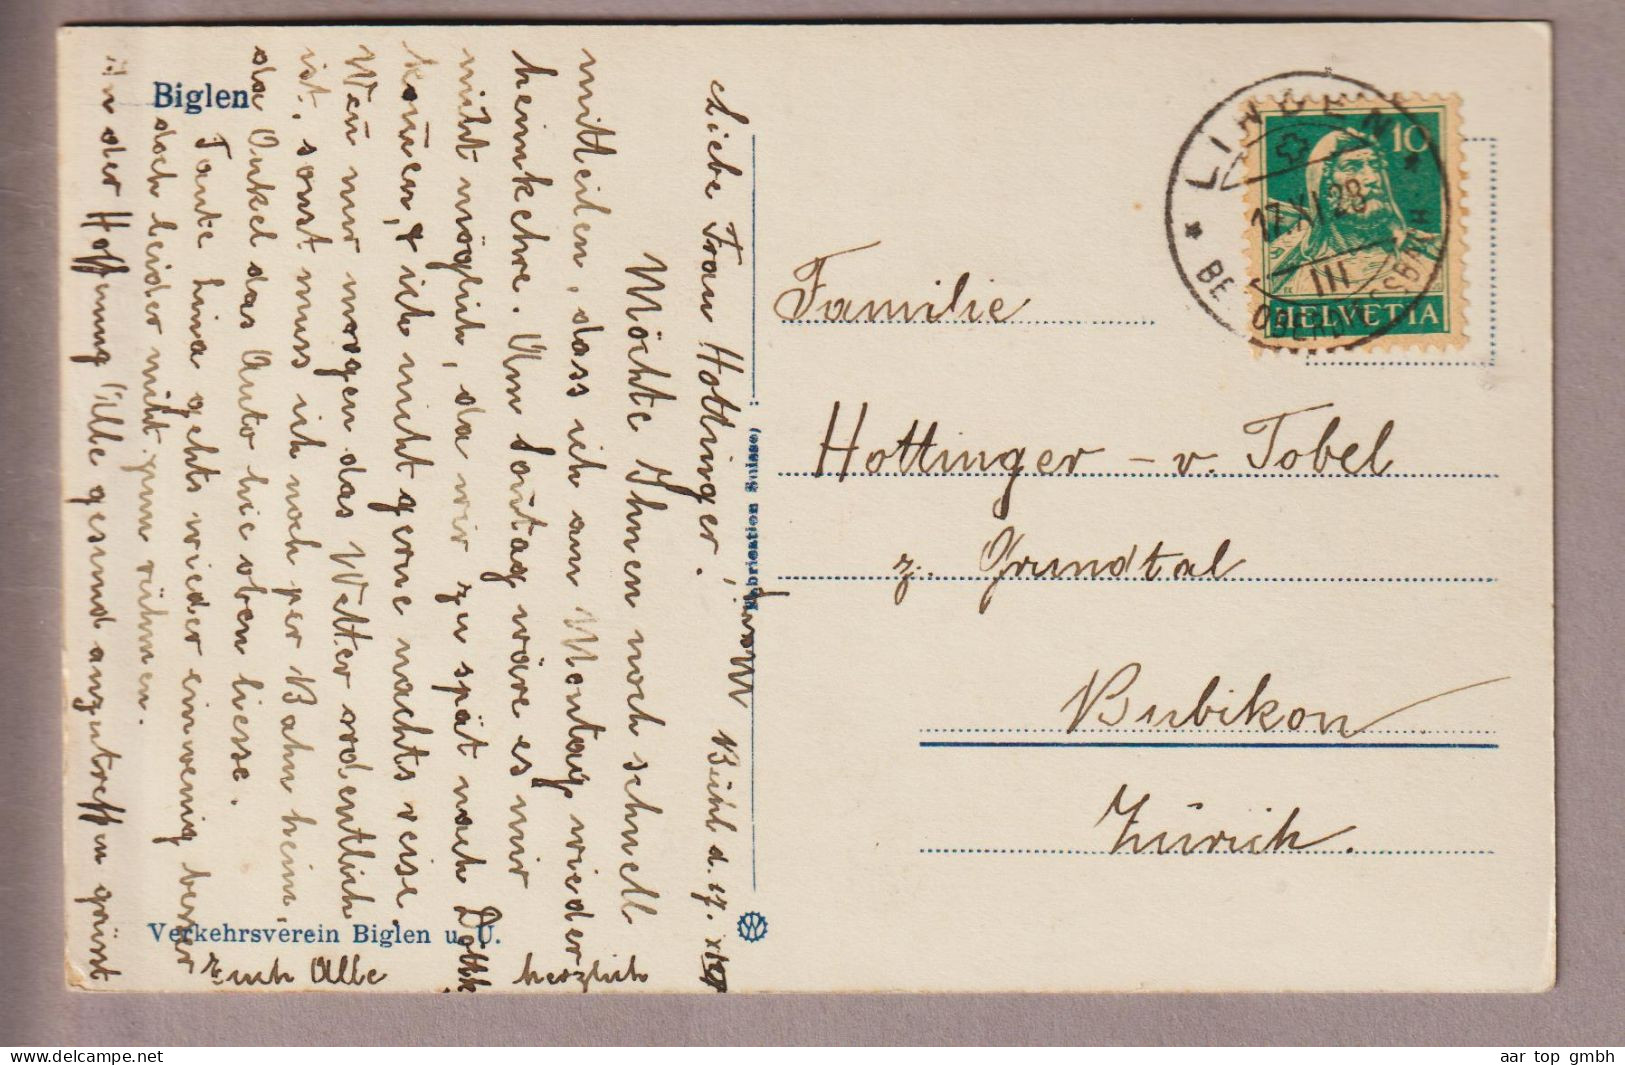 Biglen
Bühl d. 17. XI
Liebe Frau Hottinger!
Möchte Ihnen noch schnell
mitteilen, dass ich am Montag wieder
heimkehre. Am Soñtag wäre es mir
nicht möglich, da wir zu spät nach
koñen, & ich nicht gerne nachts reise.
Weñ nur morgen das Wetter ordentlich
ist, sonst muss ich noch per Bahn heim,
da Onkel das Auto hie oben liesse.
Tante Lina gehts wieder ein wenig besser
doch leider nicht zum rühmen.
In der Hoffnung Alle gesund anzutreffen grüsst
Euch Alle herzlich
Verkehrsverein Biglen u. U.
Fabrication Suisse
LINDEN
17. XI 28
III
BE. OBERDIESSBACH
10
HELVETIA
Familie
Hottinger - v. Tobel
z. Grundtal
Bubikon
Zürich.
aar top gmbh
www.delcampe.net